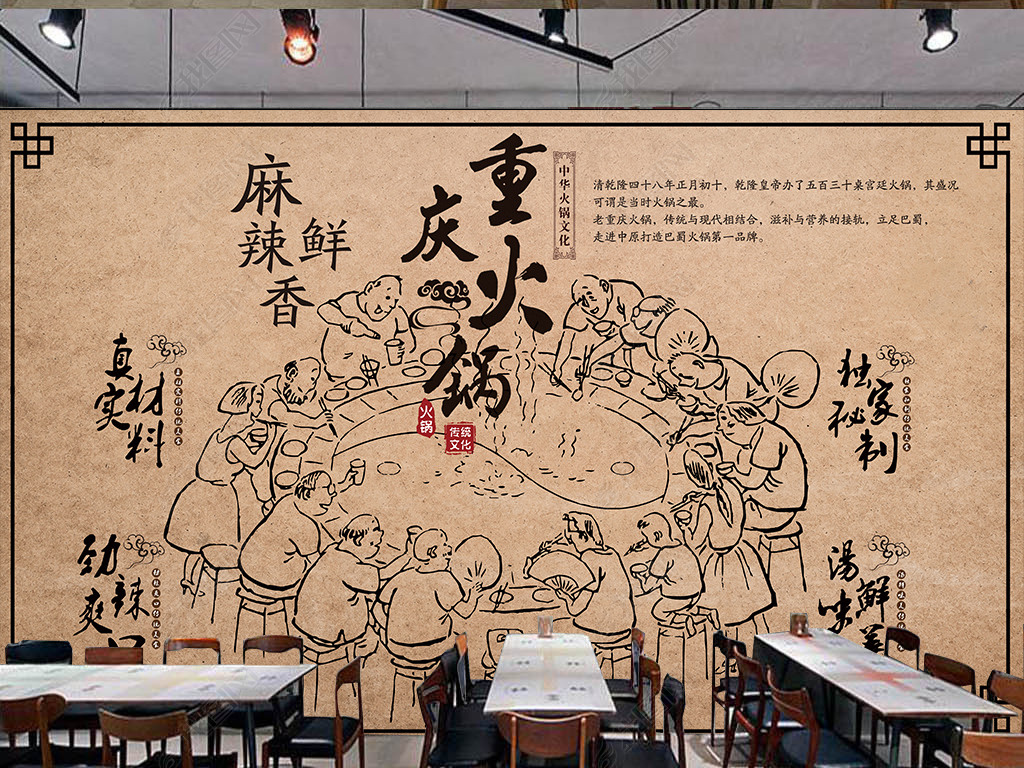 麻
辣鲜
香
重
庆
火
锅
中华火锅文化
清乾隆四十八年正月初十，乾隆皇帝办了五百三十桌宫廷火锅，其盛况
可谓是当时火锅之最。
老重庆火锅，传统与现代相结合，滋补与营养的接轨，立足巴蜀，
走进中原打造巴蜀火锅第一品牌。
火锅
传统
文化
真材
实料
独家
秘制
劲辣
爽口
汤鲜
味美